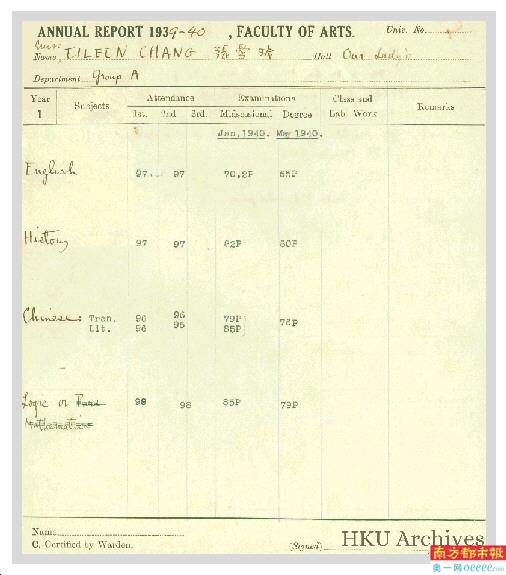 ANNUAL REPORT 1939-40, FACULTY OF ARTS. Univ. No.
Name EILEEN CHANG 張愛玲 Hall Our Lady's
Department Group A
Year Subjects Attendance Examinations Class and Remarks
1 1st. 2nd 3rd. Midsessional Degree Lab. Work
Jan. 1940. May 1940.
English 97. 97 70.2P 65P
History 97 97 82P 80P
Chinese: Tran. 96 96 79P 76P
Lit. 96 95 85P
Logic or Pure 98 98 85P 79P
Mathematics
Name
C. Certified by Warden. (Signed)
HKU Archives
南方都市報
奥一网oeeee.com